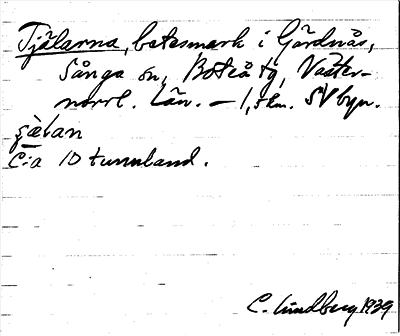 Tjälarna, betesmark i Gårdnäs,
Sånga sn, Boteå tg, Väster-
norrl. län. – 1,5 km. SV byn.
C:a 10 tunnland.
C. Lindberg 1939